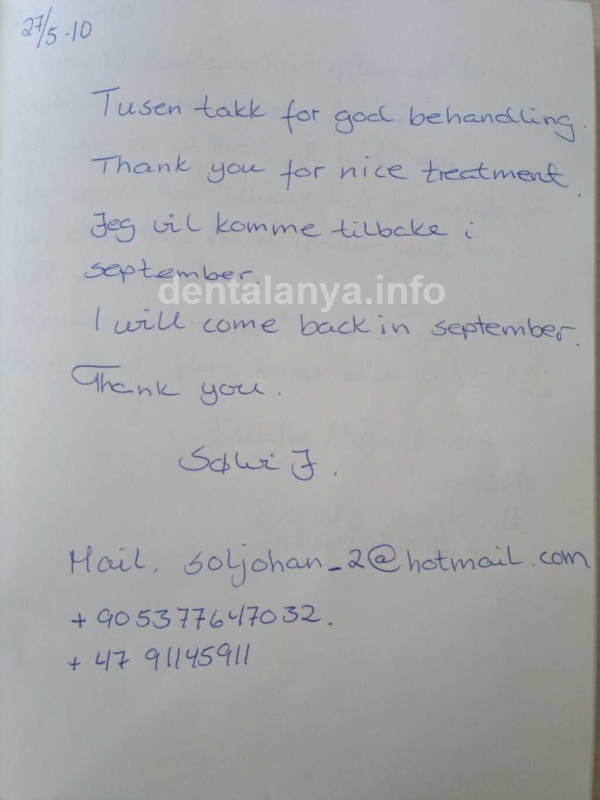 27/5-10
Tusen takk for god behandling.
Thank you for nice treatment.
Jeg vil komme tilbake i
september.
dentalanya.info
I will come back in september.
Thank you.
Sølvi J.
Mail. soljohan_2@hotmail.com
+905377647032.
+47 91145911